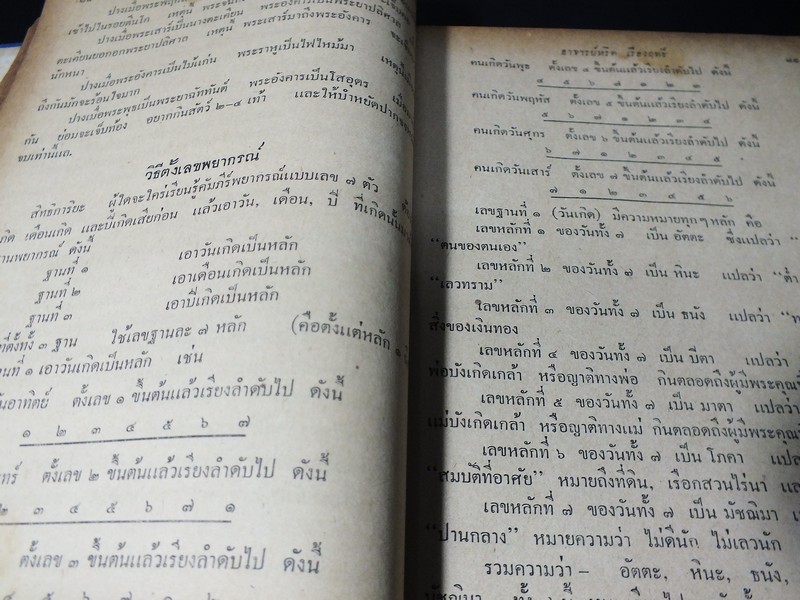 เข้าไปในรอยตีนโค เหตุนี้
ปางเมื่อพระเสาร์เป็นนางตะเคียน พระเสาร์มาถึงพระอังคาร
ตะเคียนยอกอกพระยาปลีศาล เหตุนี้
นักหนา
ปางเมื่อพระอังคารเป็นไม้แก่น พระราหูเป็นไฟไหม้มา เหตุนี้
ถึงกันมักจะร้อนใจมาก
ปางเมื่อพระพุธเป็นพระยาฉัททันต์ พระอังคารเป็นโสอุดร เมื่อ
กัน ย่อมจะเจ็บท้อง อยากกินสัตว์ ๒-๔ เท้า และให้บำหยัดปาก
จบเท่านี้แล.
วิธีตั้งเลขพยากรณ์
สิทธิการิยะ ผู้ใดจะใคร่เรียนรู้คัมภีร์พยากรณ์แบบเลข ๗ ตัว
เกิด เดือนเกิด และปีเกิดเสียก่อน แล้วเอาวัน, เดือน, ปี ที่เกิดนั้น
ฐานพยากรณ์ ดังนี้
ฐานที่ ๑ เอาวันเกิดเป็นหลัก
ฐานที่ ๒ เอาเดือนเกิดเป็นหลัก
ฐานที่ ๓ เอาปีเกิดเป็นหลัก
ที่ตั้งทั้ง ๓ ฐาน ใช้เลขฐานละ ๗ หลัก (คือตั้งแต่หลัก ๑
ฐานที่ ๑ เอาวันเกิดเป็นหลัก เช่น
วันอาทิตย์ ตั้งเลข ๑ ขึ้นต้นแล้วเรียงลำดับไป ดังนี้
๑ ๒ ๓ ๔ ๕ ๖ ๗
ตั้งเลข ๒ ขึ้นต้นแล้วเรียงลำดับไป ดังนี้
๒ ๓ ๔ ๕ ๖ ๗ ๑
ตั้งเลข ๓ ขึ้นต้นแล้วเรียงลำดับไป ดังนี้
อาจารย์หรีด เรืองฤทธิ์
คนเกิดวันพุธ ตั้งเลข ๔ ขึ้นต้นแล้วเรียงลำดับไป ดังนี้
๔ ๕ ๖ ๗ ๑ ๒ ๓
คนเกิดวันพฤหัส ตั้งเลข ๕ ขึ้นต้นแล้วเรียงลำดับไป ดังนี้
๕ ๖ ๗ ๑ ๒ ๓ ๔
คนเกิดวันศุกร ตั้งเลข ๖ ขึ้นต้นแล้วเรียงลำดับไป ดังนี้
๖ ๗ ๑ ๒ ๓ ๔ ๕
คนเกิดวันเสาร์ ตั้งเลข ๗ ขึ้นต้นแล้วเรียงลำดับไป ดังนี้
๗ ๑ ๒ ๓ ๔ ๕ ๖
เลขฐานที่ ๑ (วันเกิด) มีความหมายทุกๆหลัก คือ
เลขหลักที่ ๑ ของวันทั้ง ๗ เป็น อัตตะ ซึ่งแปลว่า
“ตนของตนเอง”
เลขหลักที่ ๒ ของวันทั้ง ๗ เป็น หินะ แปลว่า
“เลวทราม”
เลขหลักที่ ๓ ของวันทั้ง ๗ เป็น ธนัง แปลว่า
สิ่งของเงินทอง
เลขหลักที่ ๔ ของวันทั้ง ๗ เป็น ปีตา แปลว่า
พ่อบังเกิดเกล้า หรือญาติทางพ่อ กินตลอดถึงผู้มีพระคุณ
เลขหลักที่ ๕ ของวันทั้ง ๗ เป็น มาตา แปลว่า
แม่บังเกิดเกล้า หรือญาติทางแม่ กินตลอดถึงผู้มีพระคุณ
เลขหลักที่ ๖ ของวันทั้ง ๗ เป็น โภคา
“สมบัติที่อาศัย” หมายถึงที่ดิน, เรือกสวนไร่นา
เลขหลักที่ ๗ ของวันทั้ง ๗ เป็น มัชฌิมา
“ปานกลาง” หมายความว่า ไม่ดีนัก ไม่เลวนัก
รวมความว่า – อัตตะ, หินะ, ธนัง,